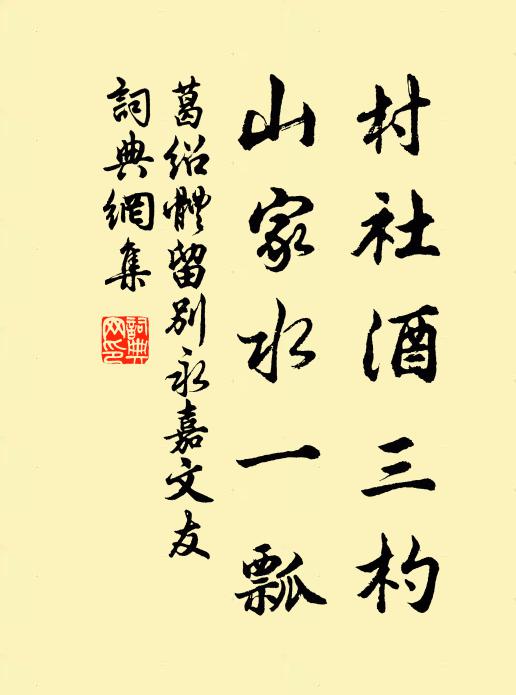 村社酒三杓
山家水一瓢
葛绍體留别永嘉文友
詞典網集
詞典網印